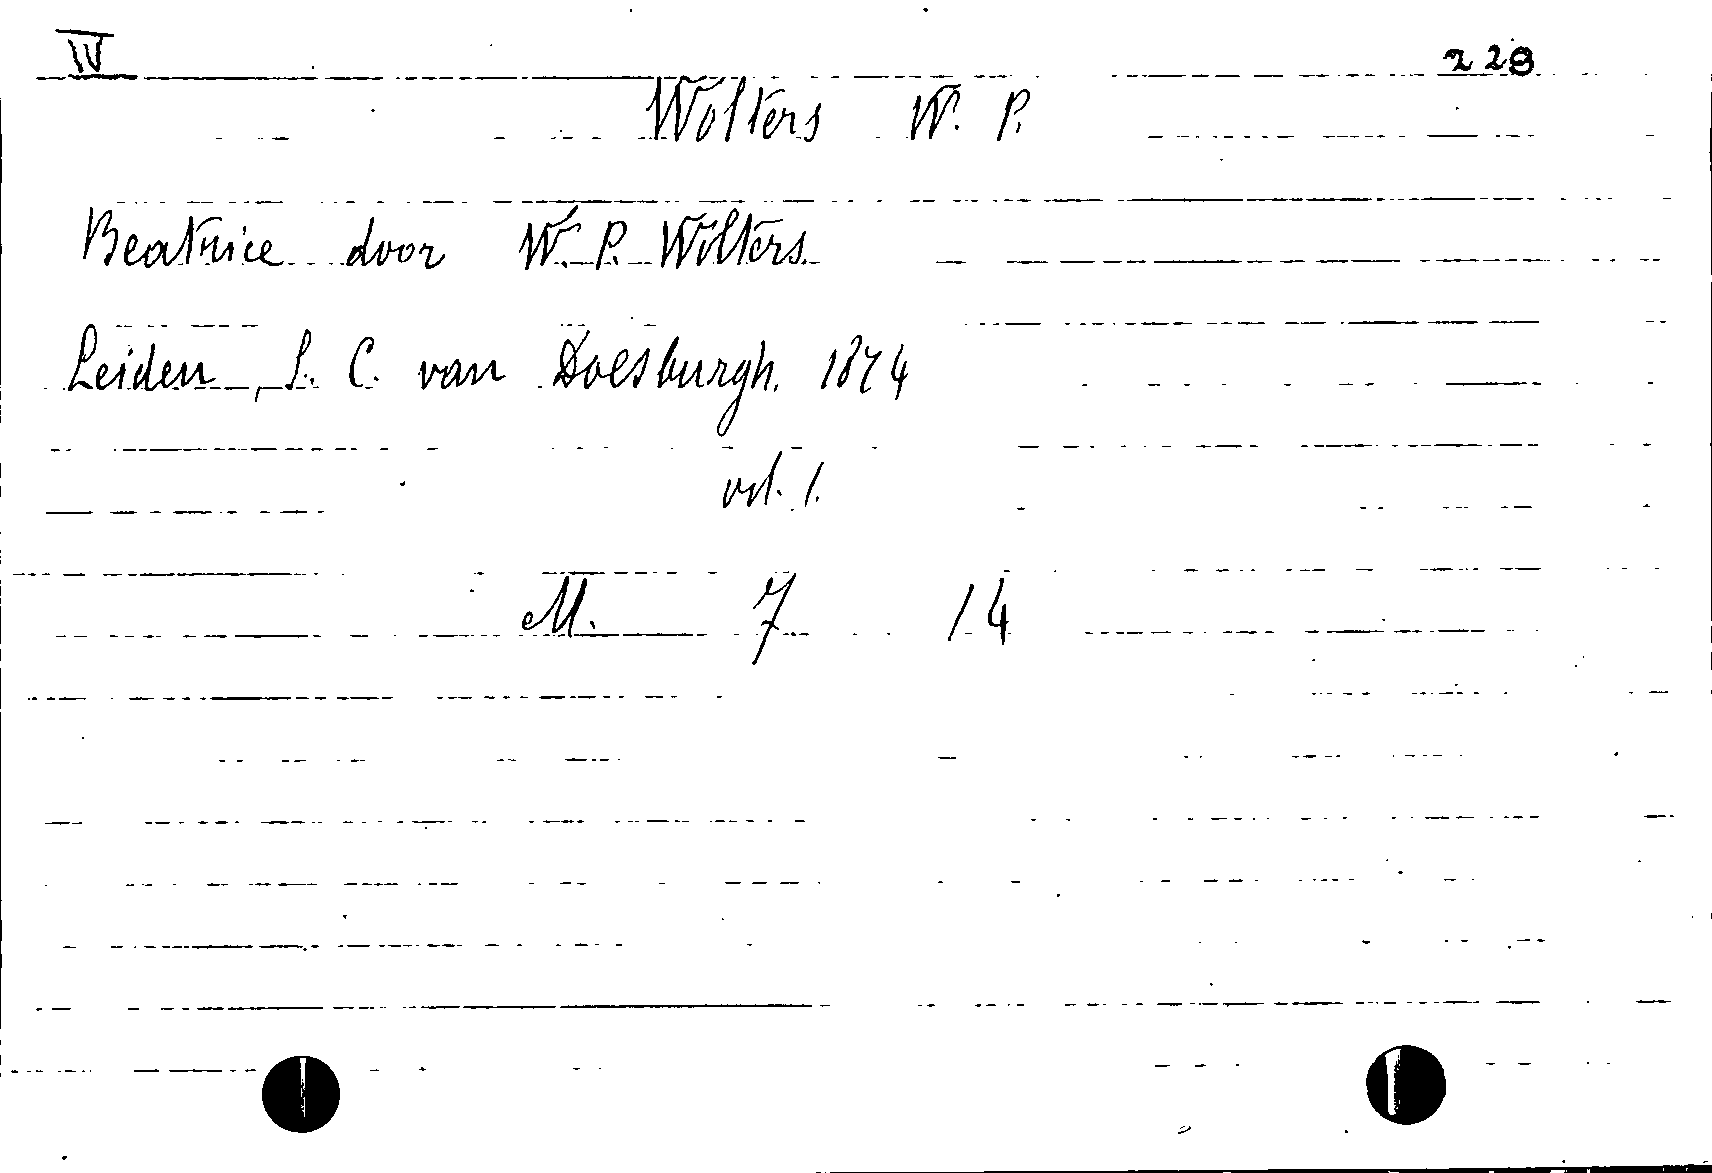 IV 228
Wolters W. P.
Beatrice door W. P. Wolters.
Leiden, S. C. van Doesburgh. 1874
vol. 1.
M. 7 14